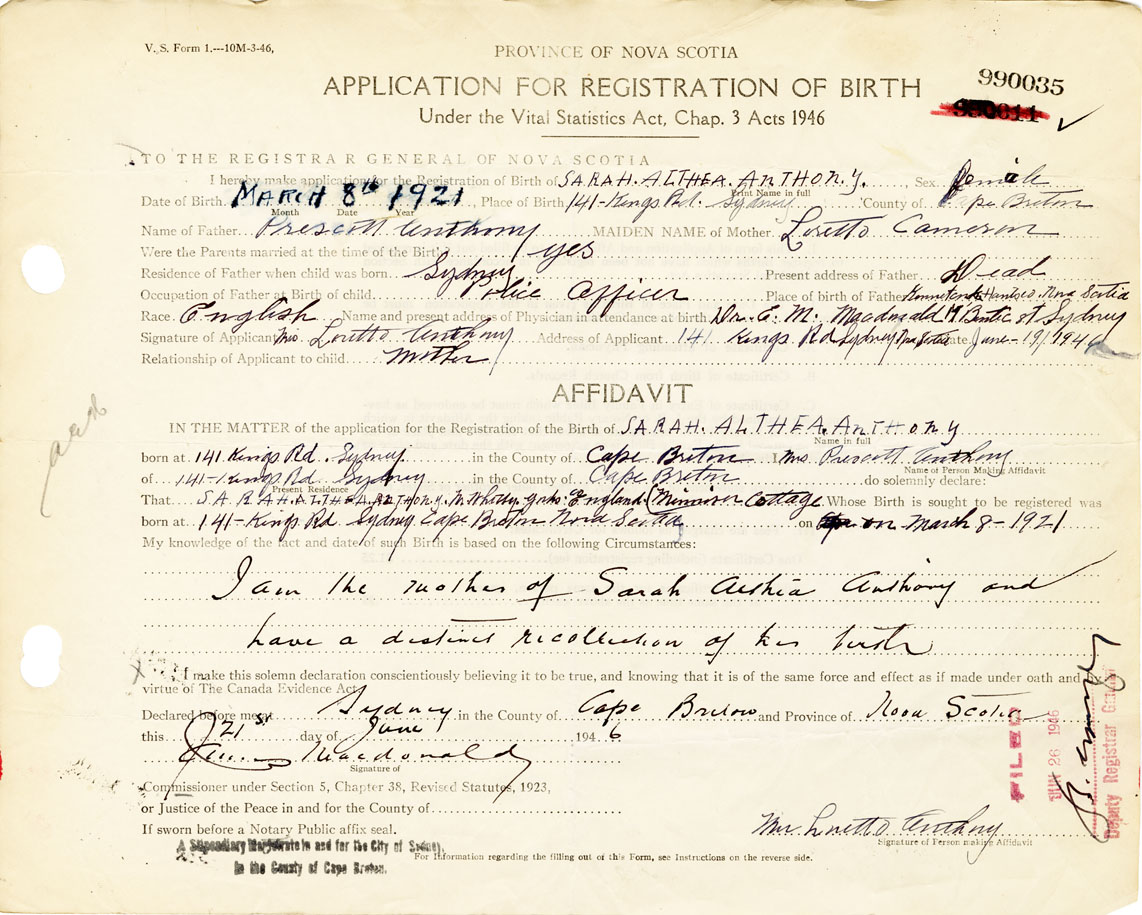 V. S. Form 1.---10M-3-46,
PROVINCE OF NOVA SCOTIA
APPLICATION FOR REGISTRATION OF BIRTH
990035
Under the Vital Statistics Act, Chap. 3 Acts 1946
TO THE REGISTRAR GENERAL OF NOVA SCOTIA
I hereby make application for the Registration of Birth of SARAH. ALTHEA. ANTHONY. Sex Female
Print Name in full
Date of Birth MARCH 8th 1921, Place of Birth 141-Kings Rd. Sydney County of Cape Breton
Month Date Year
Name of Father Prescott Anthony MAIDEN NAME of Mother Loretto Cameron
Were the Parents married at the time of the Birth yes
Residence of Father when child was born Sydney Present address of Father Dead
Occupation of Father at Birth of child Police Officer Place of birth of Father Hants Co. Nova Scotia
Race English Name and present address of Physician in attendance at birth Dr. E. M. Macdonald Sydney
Signature of Applicant Mrs. Loretto Anthony Address of Applicant 141 Kings Rd Sydney Date June-19/1946
Relationship of Applicant to child Mother
AFFIDAVIT
IN THE MATTER of the application for the Registration of the Birth of SARAH. ALTHEA. ANTHONY
Name in full
born at 141 Kings Rd. Sydney in the County of Cape Breton I Mrs. Prescott Anthony
Name of Person Making Affidavit
of 141-Kings Rd Sydney in the County of Cape Breton do solemnly declare:
Present Residence
That SARAH. ALTHEA. ANTHONY. England Cottage Whose Birth is sought to be registered was
born at 141-Kings Rd Sydney Cape Breton Nova Scotia on on March 8-1921
My knowledge of the fact and date of such Birth is based on the following Circumstances:
I am the mother of Sarah Althia Anthony and
have a distinct recollection of her birth
I make this solemn declaration conscientiously believing it to be true, and knowing that it is of the same force and effect as if made under oath and by
virtue of The Canada Evidence Act.
Declared before me at Sydney in the County of Cape Breton and Province of Nova Scotia
this 21st day of June 1946
Macdonald
Signature of
Commissioner under Section 5, Chapter 38, Revised Statutes, 1923,
or Justice of the Peace in and for the County of
If sworn before a Notary Public affix seal.
A Stipendiary Magistrate in and for the City of Sydney,
in the County of Cape Breton.
For Information regarding the filling out of this Form, see Instructions on the reverse side.
Mrs Loretto Anthony
Signature of Person making Affidavit
FILED
JUN 26 1946
Deputy Registrar General